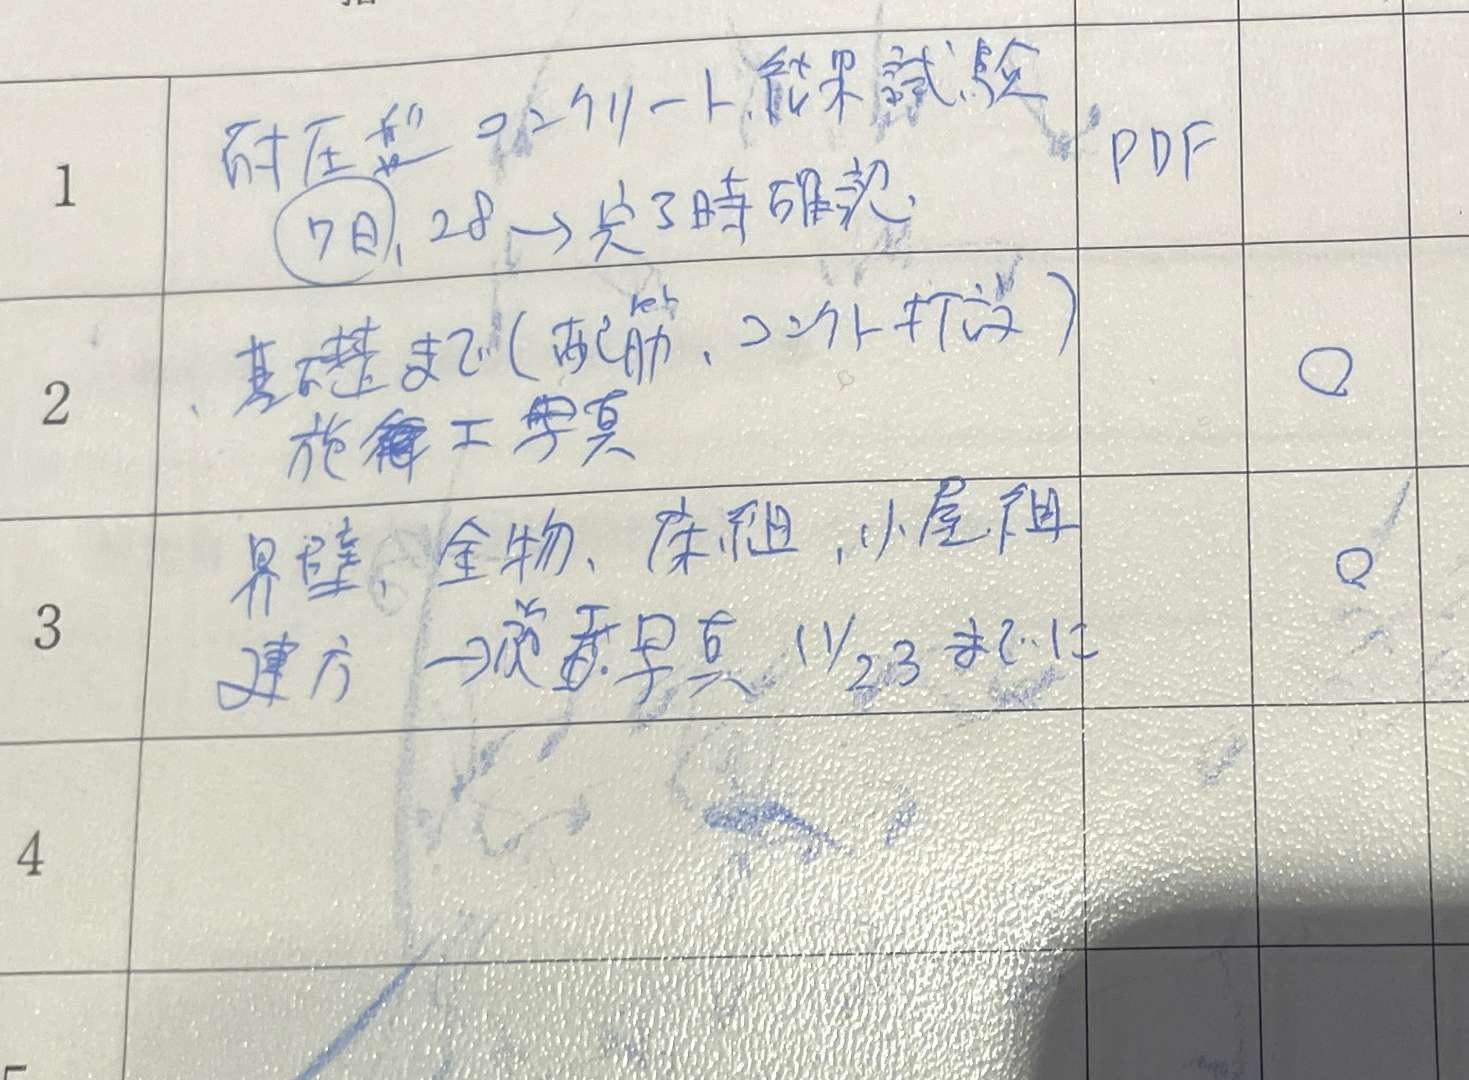 1
耐圧盤 コンクリート結果試験
PDF
7日、28→完了時確認
2
基礎まで(配筋、コンクト打設)
施工写真
3
界壁、金物、床組、小屋組
建方 → 写真 11/23までに
4